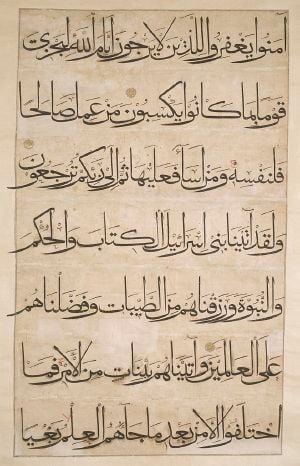 آمنوا يغفروا للذين لا يرجون أيام الله ليجزي
قوما بما كانوا يكسبون من عمل صالحا
فلنفسه ومن أسا فعليها ثم إلى ربكم ترجعون
ولقد آتينا بني اسرائيل الكتاب والحكم
والنبوة ورزقناهم من الطيبات وفضلناهم
على العالمين وآتيناهم بينات من الأمر فما
اختلفوا إلا من بعد ما جاهم العلم بغيا